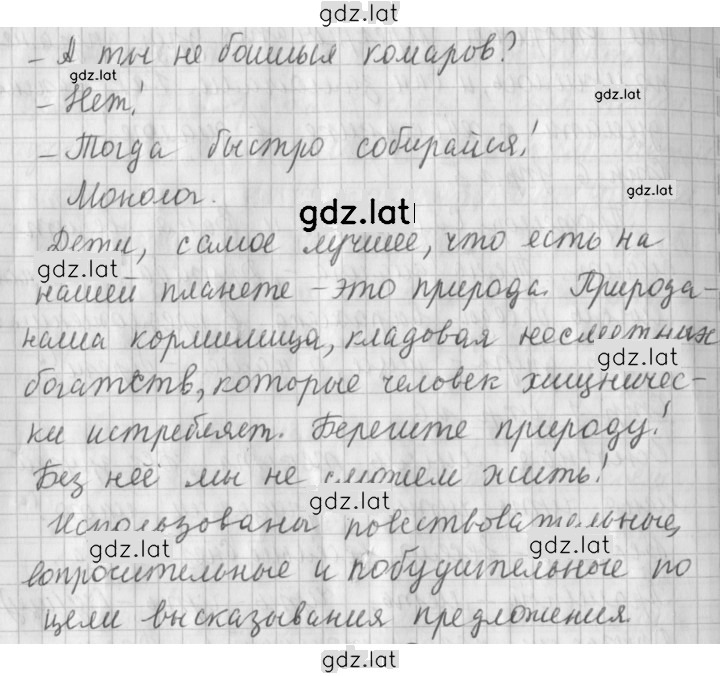 gdz.lat
- А ты не боишься комаров?
gdz.lat
- Нет!
gdz.lat
- Тогда быстро собирайся!
Монолог.
gdz.lat
gdz.lat
Дети, самое лучшее, что есть на
gdz.lat
нашей планете - это природа. Природа-
наша кормилица, кладовая несметных
gdz.lat
богатств, которые человек хищничес-
ки истребляет. Берегите природу!
Без неё мы не сможем жить!
gdz.lat
Использованы повествовательные,
gdz.lat
gdz.lat
вопросительные и побудительные по
цели высказывания предложения.
gdz.lat